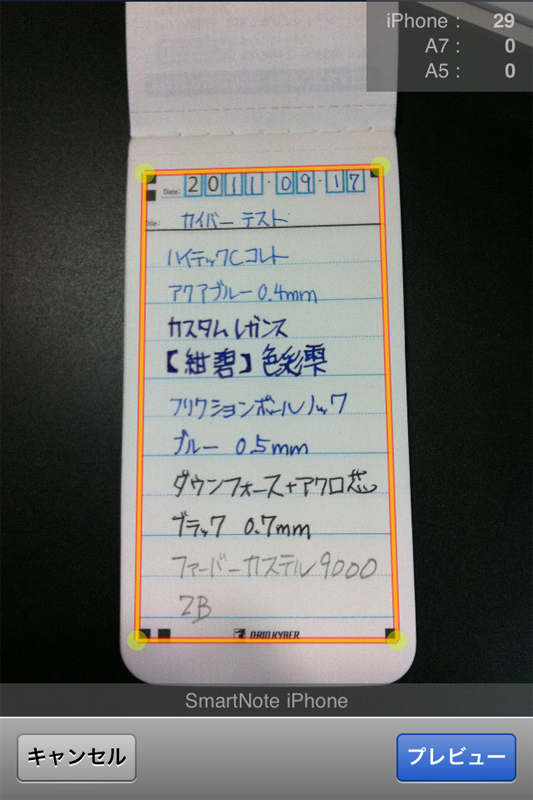 iPhone : 29
A7 : 0
A5 : 0
Date: 2011.09.17
Title: カイバー テスト
ハイテックCコレト
アクアブルー 0.4mm
カスタムレガンス
【紺碧】色彩雫
フリクションボールノック
ブルー 0.5mm
ダウンフォース+アクロ芯
ブラック 0.7mm
ファーバーカステル9000
2B
ORIO KYBER
SmartNote iPhone
キャンセル
プレビュー